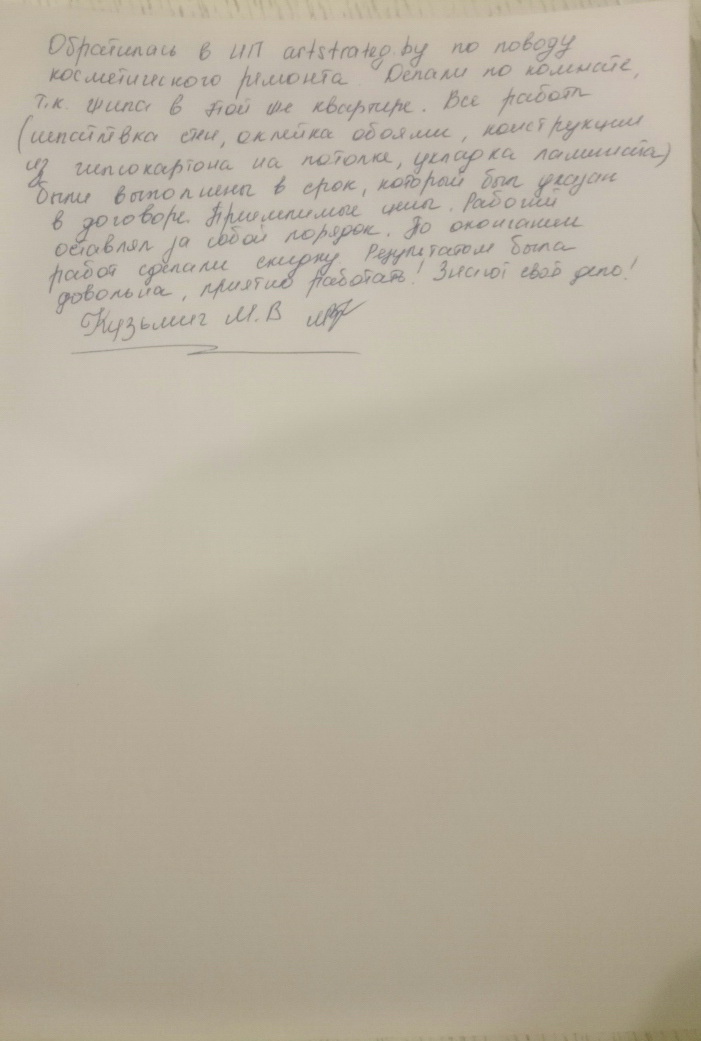 Обратилась в ИП artstrateg.by по поводу
косметического ремонта. Делали по комнате,
т.к. жила в той же квартире. Все работы
(шпатлвка стен, оклейка обоями, конструкции
из гипсокартона на потолке, укладка ламината)
были выполнены в срок, который был указан
в договоре. Приемлимые цены. Рабочий
оставлял за собой порядок. По окончании
работ сделали скидку. Результатом была
довольна, приятно работать! Знают своё дело!
Кузьмич М.В